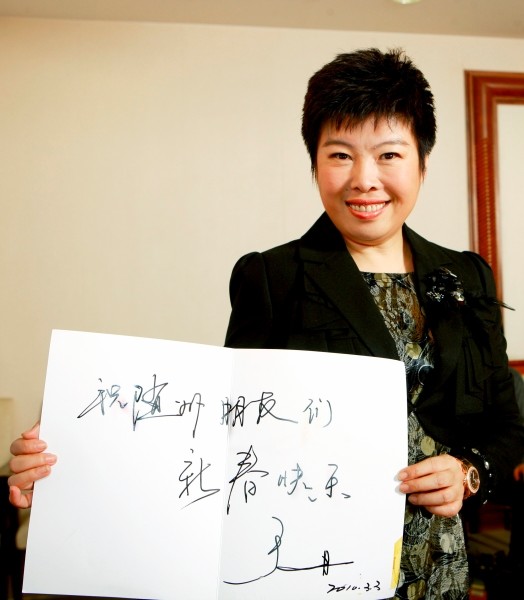 祝随州朋友们
新春快乐
2010.3.3